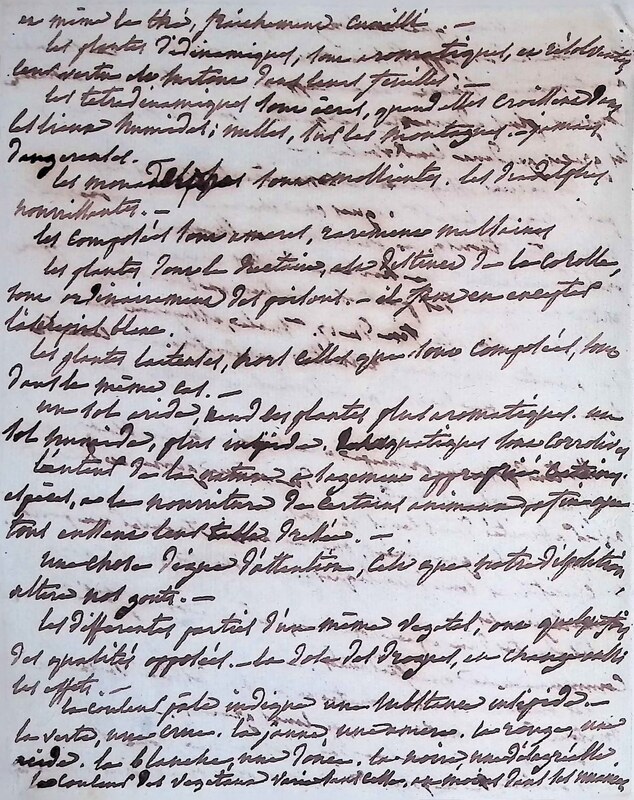 et même le thé, fraichement cueilli. —
les plantes didinamiques, sont aromatiques, et résolventes
leur vertu dans leurs feuilles. —
les tetradinamiques sont acres, quand elles croissent dans
les lieux humides; nulles, sur les montagnes. — jamais
dangereuses.
les monadelphes sont emollientes. les diadelphes
nourrissantes. —
les composées sont ameres, rarement malsaines
les plantes dont le nectaire, est distinct de la corolle,
sont ordinairement des poisons. — il faut en excepter
blanc.
les plantes laiteuses, hors celles qui sont composées, sont
dans le même cas. —
un sol aride, rend les plantes plus aromatiques. un
sol humide, plus insipide. les aquatiques sont corrosives
de la nature a
espèces, a la nourriture de certains animaux
tous . —
une chose digne d'attention, c'est que notre disposition,
altere nos gouts. —
les differentes parties d'un même vegetal, ont quelquefois
des qualités opposées. — la dose des drogues, en change aussi
les effets. —
la couleur pâle indique une substance insipide. —
la verte, une crue. la jaune, une amere. la rouge, une
acide. la blanche, une douce. la noire, une désagréable
la couleur des vegetaux varie dans celle, au moins dans les